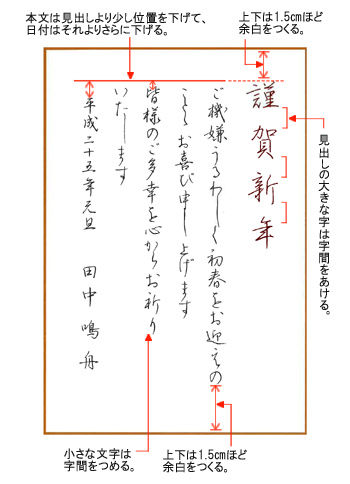 本文は見出しより少し位置を下げて、
日付はそれよりさらに下げる。
上下は1.5cmほど
余白をつくる。
謹賀新年
ご機嫌うるわしく初春をお迎えの
ことと お喜び申し上げます
皆様のご多幸を心からお祈り
いたします
平成二十五年元旦 田中鳴舟
見出しの大きな字は字間をあける。
小さな文字は
字間をつめる。
上下は1.5cmほど
余白をつくる。